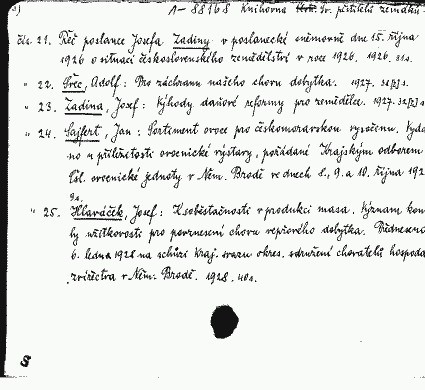 A-88168 Knihovna Sv. přítelů zeměd.
čís. 21. Řeč poslance Josefa Zadiny v poslanecké sněmovně dne 15. října
1926 o situaci československého zemědělství v roce 1926. 1926. 31s.
" 22. Prec, Adolf: Pro záchranu našeho chovu dobytka. 1927. 32[?]s.
" 23. Zadina, Josef: Výhody daňové reformy pro zemědělce. 1927. 32[?]s
" 24. Sajfert, Jan: Sortiment ovoce pro českomoravskou vysočinu. Vydá
no u příležitosti ovocnické výstavy, pořádané Krajským odborem
Čsl. ovocnické jednoty v Něm. Brodě ve dnech 8., 9. a 10. října 192
9s.
" 25. Hlaváček, Josef: K soběstačnosti v produkci masa. Význam kon
by užitkovosti pro povznesení chovu vepřového dobytka. Předneseno
6. ledna 1928 na schůzi Kraj. svazu okres. sdružení chovatelů hospodá
zvířectva v Něm. Brodě. 1928. 40s.
S